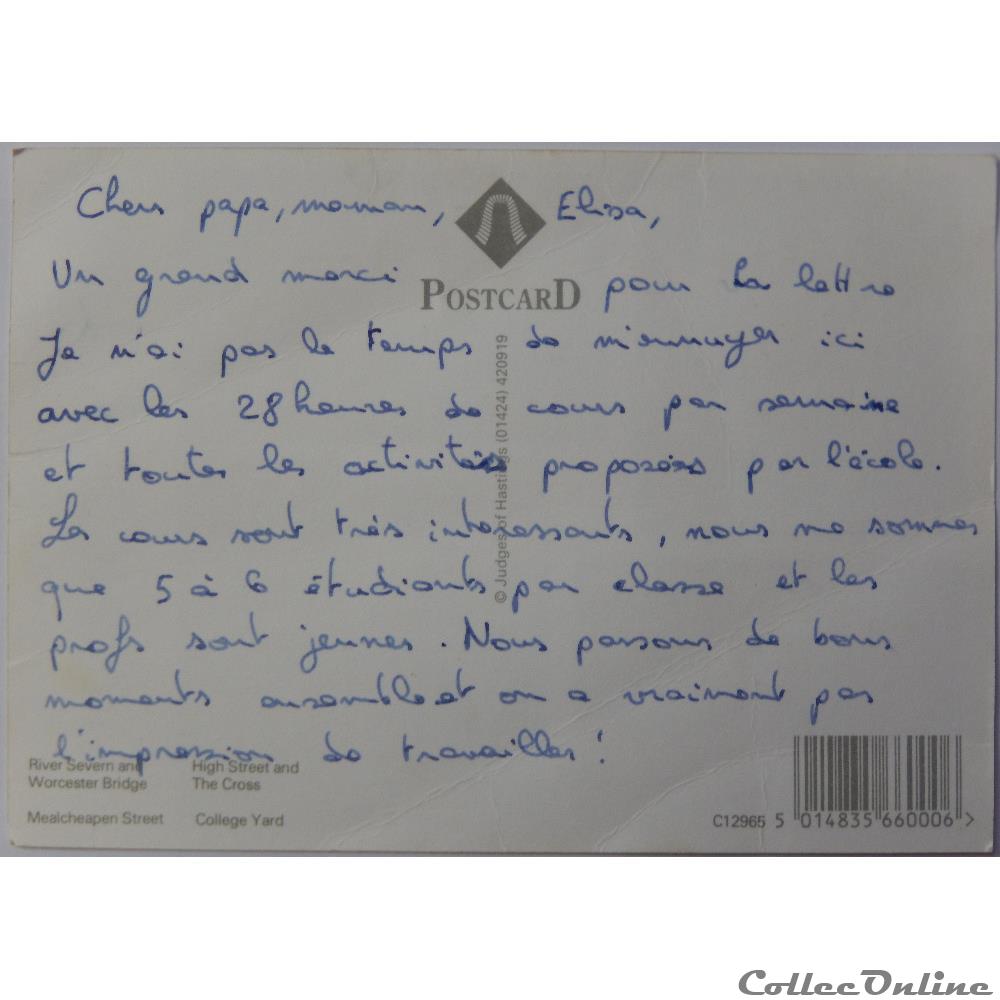 Chers papa, maman, Elisa,
Un grand merci pour la lettre
POSTCARD
Je n'ai pas le temps de m'ennuyer ici
avec les 28 heures de cours par semaine
et toutes les activités proposées par l'école.
Les cours sont très intéressants, nous ne sommes
que 5 à 6 étudiants par classe et les
profs sont jeunes. Nous passons de bons
moments ensemble et on a vraiment pas
l'impression de travailler!
© Judges of Hastings (01424) 420919
River Severn and
Worcester Bridge
High Street and
The Cross
Mealcheapen Street
College Yard
C12965 5 014835 660006 >
CollecOnline